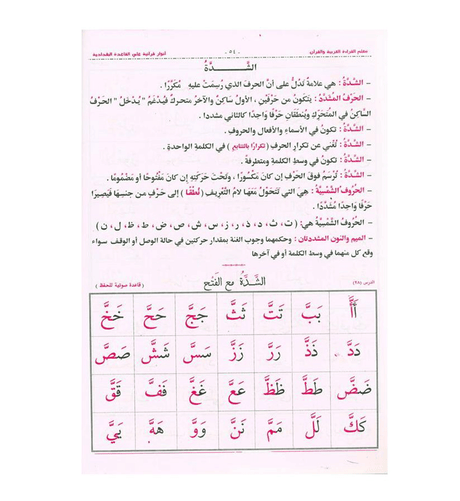 معلم القراءة العربية والقرآن - ٥٤ - أنوار قرآنية على القاعدة البغدادية
الشَّدَّةُ
– الشَّدَّةُ : هي علامةٌ تدلُّ على أنَّ الحرفَ الذي رُسِمَتْ عليهِ مُكَرَّرًا .
– الحَرْفُ المُشَدَّدُ : يَتَكونُ من حَرْفَينِ ، الأولُ ساكِنٌ والآخَرُ متحركٌ فَيُدْغَمُ " يُدخَلُ " الحَرْفُ
السَّاكِنُ في المُتَحَرِّكِ ويُنطَقانِ حَرْفًا وَاحِدًا كالثاني مشددا .
– الشَّدَّةُ : تكونُ في الأسماءِ والأفعالِ والحروفِ .
– الشَّدَّةُ : تُغْنِي عن تكرارِ الحرفِ ( تكرارًا بالتتابع ) في الكلمةِ الواحدة .
– الشَّدَّةُ : تكونُ في وسطِ الكلمةِ ومتطرفةً .
– الشَّدَّةُ : تُرسَمُ فوقَ الحَرْفِ إن كانَ مَكْسُورًا ، وتَحْتَ حَرَكَتِهِ إن كانَ مَفْتُوحًا أو مَضْمُومًا .
– الحُرُوفُ الشَّمْسِيَّةُ : هِيَ التي تَتَحَوَّلُ مَعَها لامُ التَّعْرِيفِ ( نُطْقًا ) إلى حَرْفٍ من جنسِها فَيَصِيرَا
حَرْفًا وَاحِدًا مُشَدَّدًا .
– الحُرُوفُ الشَّمْسِيَّةُ هي: ( ت ، ث ، د ، ذ ، ر ، ز ، س ، ش ، ص ، ض ، ط ، ظ ، ل ، ن )
– الميم والنون المشددتان : وحكمهما وجوب الغنة بمقدار حركتين في حالة الوصل أو الوقف سواء
وقع كل منهما في وسط الكلمة أو في آخرها
الدرس (٢٨) الشَّدَّةُ مع الفَتْحِ ( قاعدة صوتية للحفظ )
أَأَّ بَبَّ تَتَّ ثَثَّ جَجَّ حَحَّ خَخَّ
دَدَّ ذَذَّ رَرَّ زَزَّ سَسَّ شَشَّ صَصَّ
ضَضَّ طَطَّ ظَظَّ عَعَّ غَغَّ فَفَّ قَقَّ
كَكَّ لَلَّ مَمَّ نَنَّ وَوَّ هَهَّ يَيَّ